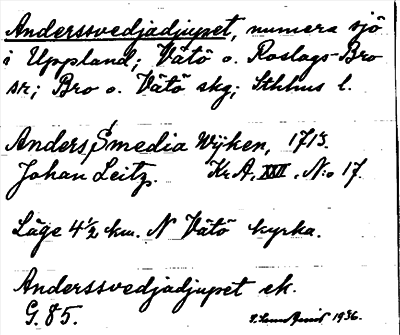 Anderssvedjadjupet, numera sjö
i Uppland; Vätö o. Roslags-Bro
sn; Bro o. Vätö skg; Sthlms l.
Anders Smedia Wijken, 1713.
Johan Leitz. Kr A, XXII, N:o 17.
Läge 4 1/2 km. N Vätö kyrka.
Anderssvedjadjupet ek.
G. 85. 1936.